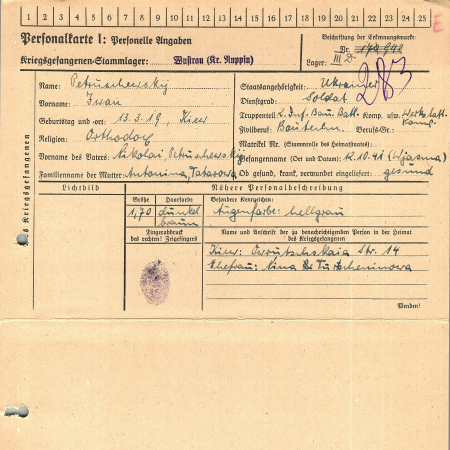 1 2 3 4 5 6 7 8 9 10 11 12 13 14 15 16 17 18 19 20 21 22 23 24 25
E
Personalkarte I: Personelle Angaben
Beschriftung der Erkennungsmarke
Nr.
Kriegsgefangenen-Stammlager: Wustrau (Kr. Ruppin)
Lager: III D
283
des Kriegsgefangenen
Name: Petruschewskij
Vorname: Iwan
Geburtstag und -ort: 13.3.19, Kiew
Religion: Orthodox
Vorname des Vaters: Nikolai Petruschewskij
Familienname der Mutter: Antonina, Tatarowa
Staatsangehörigkeit: Ukrainer
Dienstgrad: Soldat
Truppenteil: Inf. Bau. Batl. Komp. usw. Werkstatt Komp.
Zivilberuf: Berufs-Gr.
Matrikel Nr. (Stammrolle des Heimatstaates):
Gefangennahme (Ort und Datum): 10.41 (Wjasma)
Ob gesund, krank, verwundet eingeliefert: gesund
Lichtbild
Nähere Personalbeschreibung
Größe
Haarfarbe
Besondere Kennzeichen:
1,70
dunkelbraun
Augenfarbe: hellgrau
Fingerabdruck
des rechten! Zeigefingers
Name und Anschrift der zu benachrichtigenden Person in der Heimat
des Kriegsgefangenen
Kiew: Str. 14
Ehefrau: Nina
Wenden!